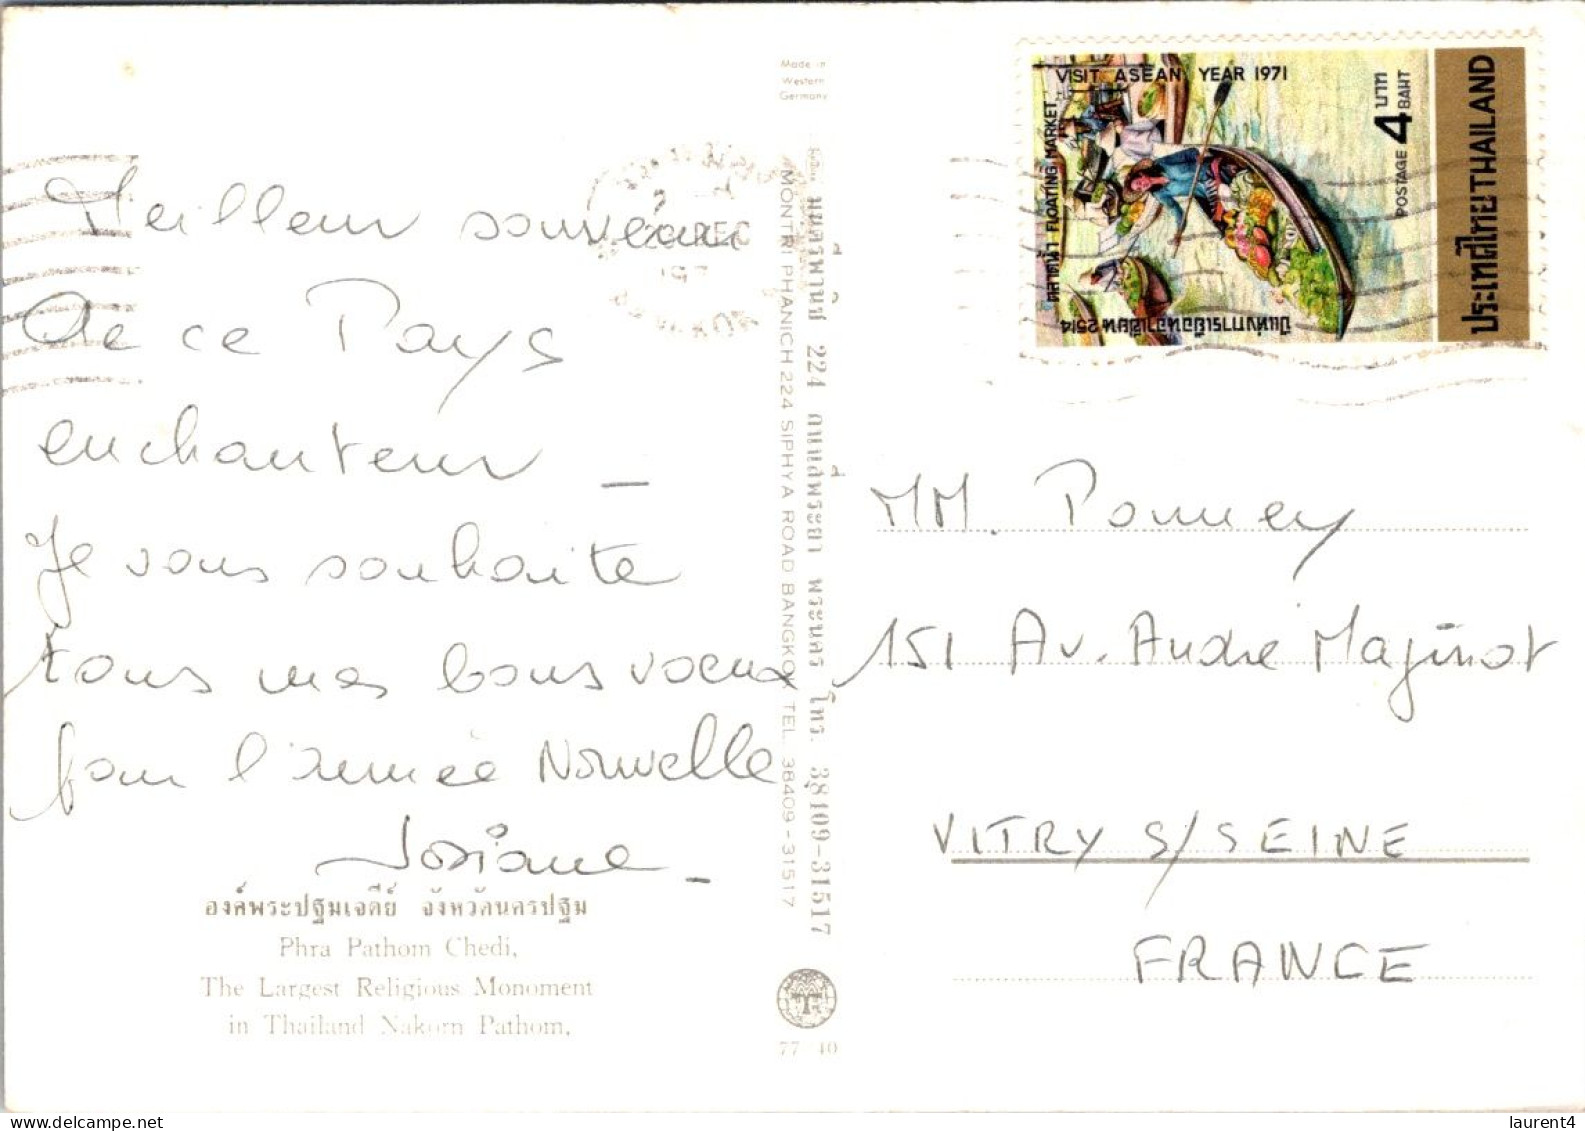 Made in
Western
Germany
VISIT ASEAN YEAR 1971
ตลาดน้ำ FLOATING MARKET
ปีแห่งการเยือนอาเซียน 2514
4 บาท
BAHT
POSTAGE
ประเทศไทย THAILAND
DEC
197
Meilleur souvenir
de ce Pays
enchanteur _
Je vous souhaite
tous mes bons voeux
pour l'année Nouvelle
Josiane _
องค์พระปฐมเจดีย์ จังหวัดนครปฐม
Phra Pathom Chedi,
The Largest Religious Monoment
in Thailand Nakorn Pathom,
มนตรีพานิช 224 ถนนสี่พระยา พระนคร โทร. 38409-31517
MONTRI PHANICH 224 SIPHYA ROAD BANGKOK TEL. 38409-31517
77-40
MM. Pommey
151 Av. André Maginot
VITRY S/SEINE
FRANCE
laurent4